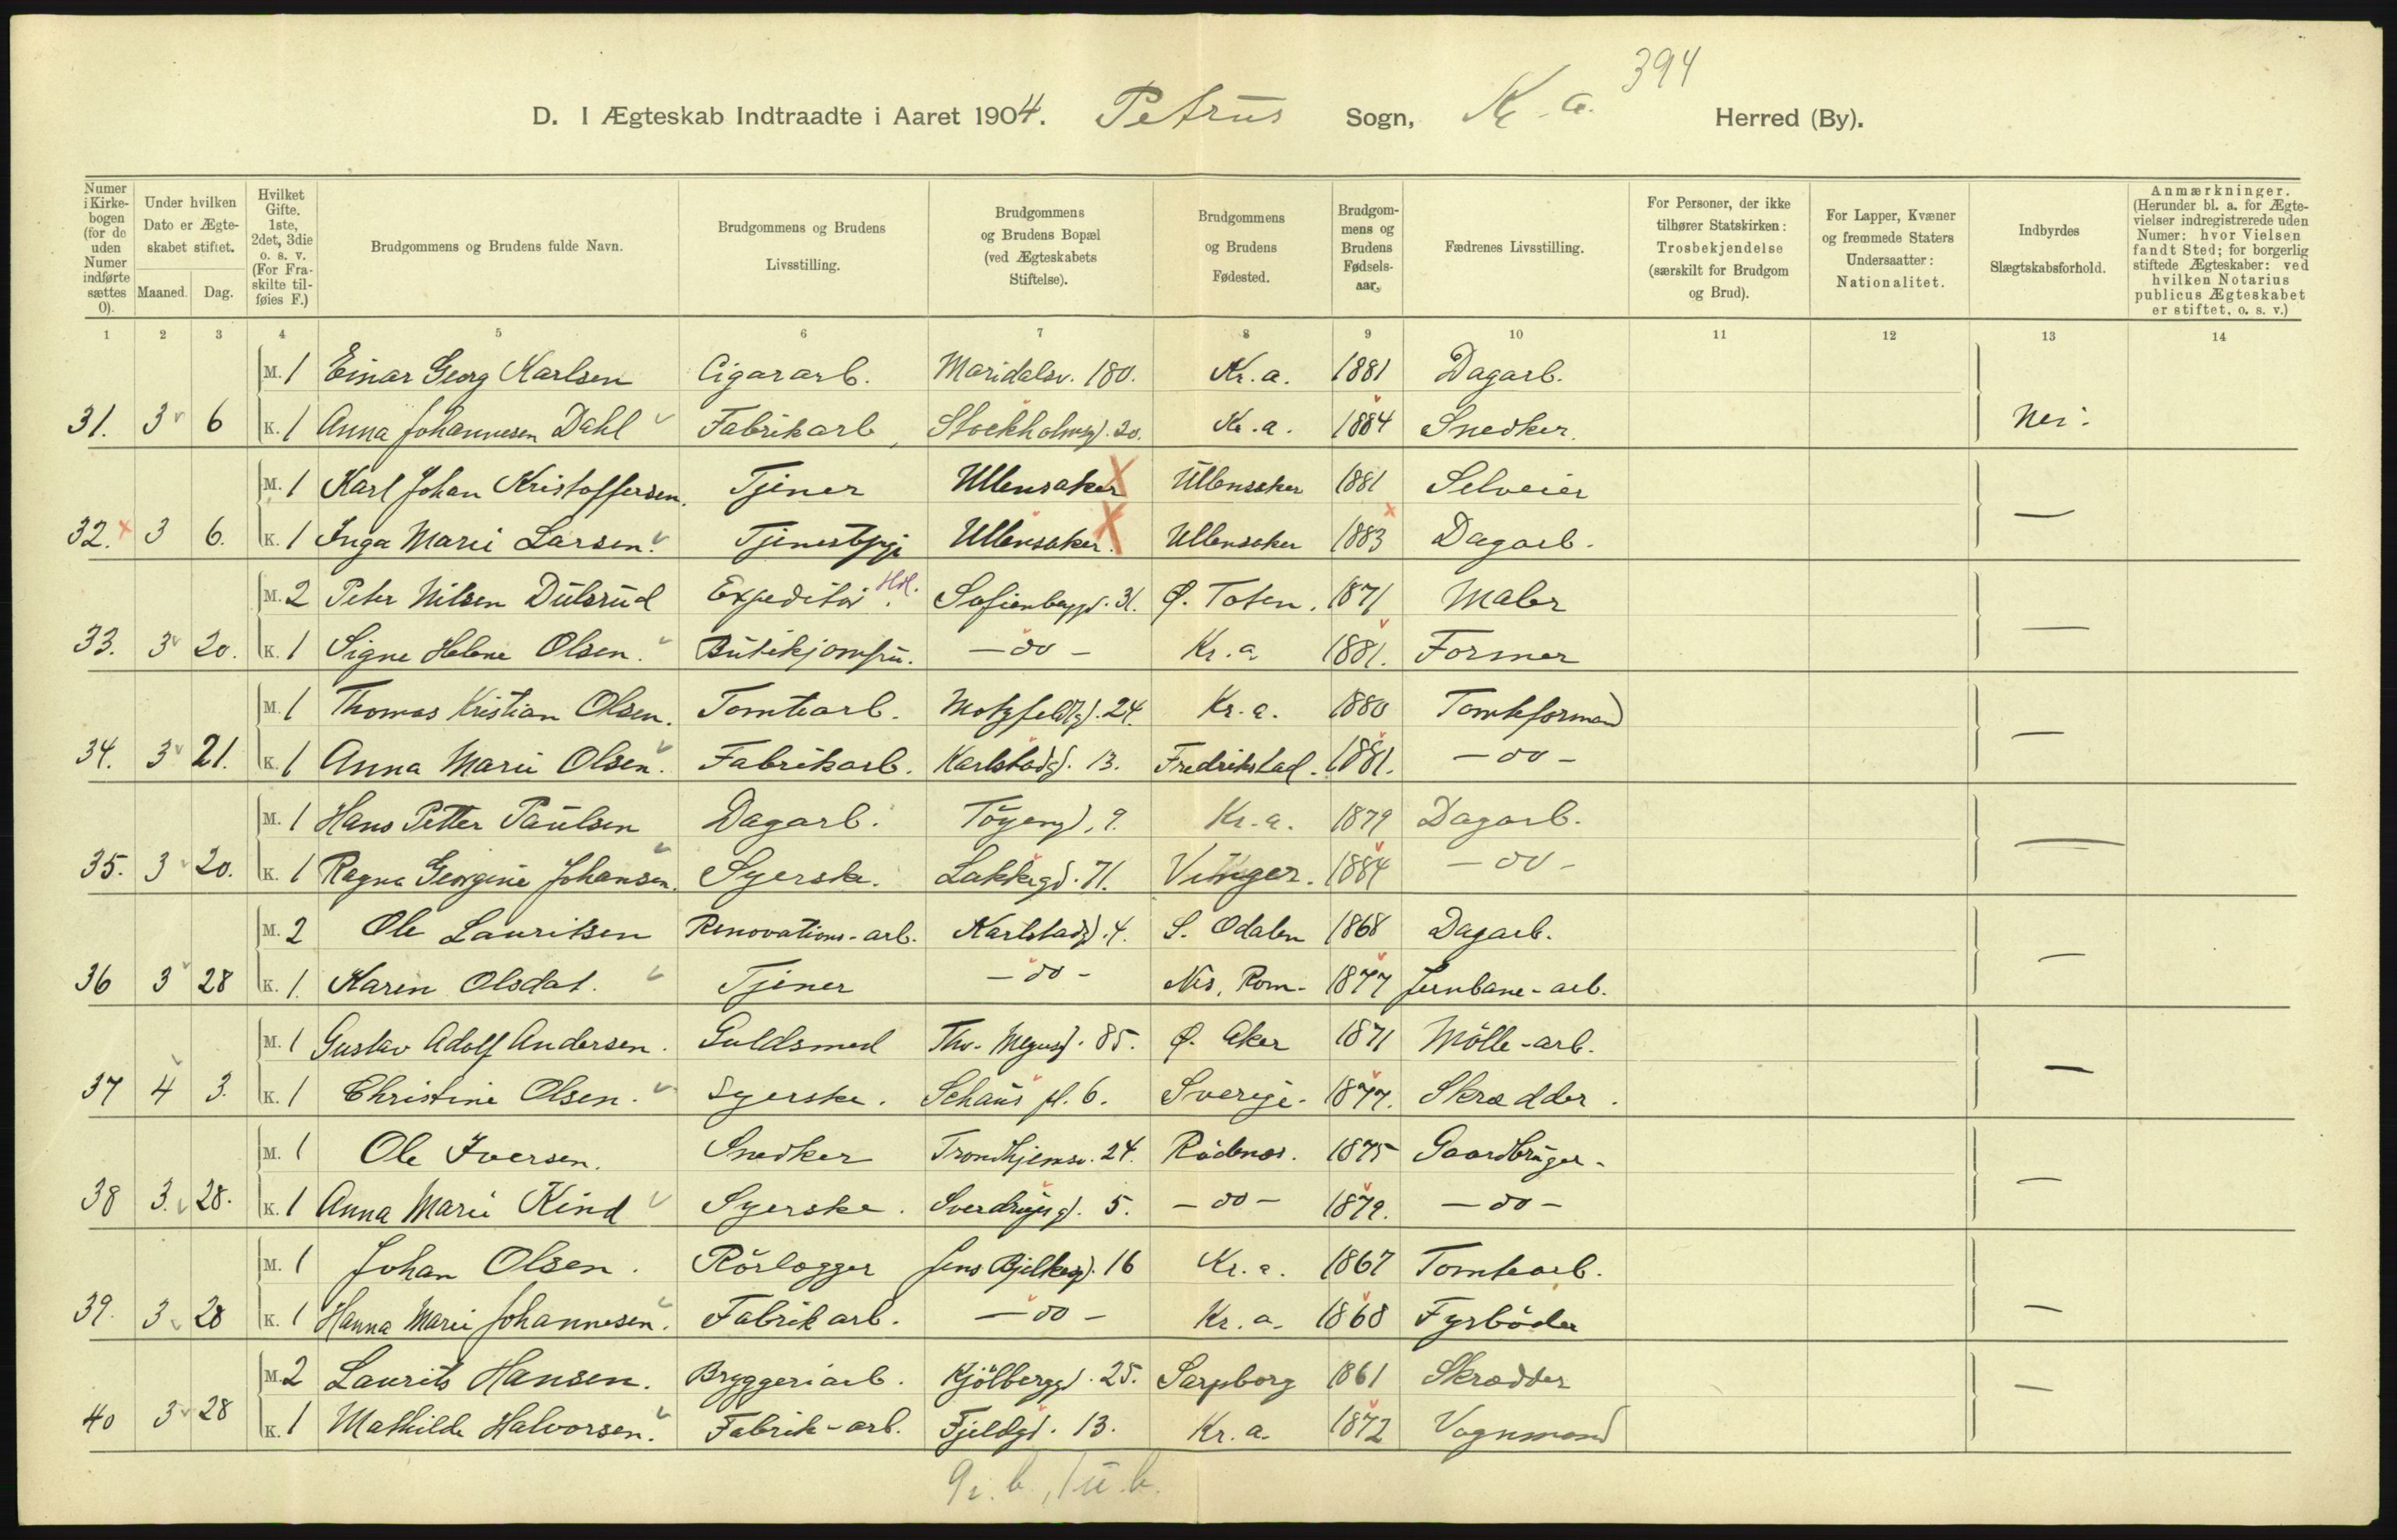 394
D. I Ægteskab Indtraadte i Aaret 1904. Petrus Sogn, K.a. Herred (By).
Numer i Kirkebogen (for de uden Numer indførte sættes 0).
Under hvilken Dato er Ægteskabet stiftet.
Maaned. Dag.
Hvilket Gifte. 1ste, 2det, 3die o. s. v. (For Fraskilte tilføies F.)
Brudgommens og Brudens fulde Navn.
Brudgommens og Brudens Livsstilling.
Brudgommens og Brudens Bopæl (ved Ægteskabets Stiftelse).
Brudgommens og Brudens Fødested.
Brudgommens og Brudens Fødselsaar.
Fædrenes Livsstilling.
For Personer, der ikke tilhører Statskirken: Trosbekjendelse (særskilt for Brudgom og Brud).
For Lapper, Kvæner og fremmede Staters Undersaatter: Nationalitet.
Indbyrdes Slægtskabsforhold.
Anmærkninger. (Herunder bl. a. for Ægtevielser indregistrerede uden Numer: hvor Vielsen fandt Sted; for borgerlig stiftede Ægteskaber: ved hvilken Notarius publicus Ægteskabet er stiftet, o. s. v.)
1 2 3 4 5 6 7 8 9 10 11 12 13 14
M. 1 Einar Georg Karlsen Cigararb. Maridalsv. 180. Kr.a. 1881 Dagarb.
31. 3 6 K. 1 Anna Johannesen Dahl Fabrikarb, Stockholmsgd. 20. Kr.a. 1884 Snedker. Nei.
M. 1 Karl Johan Kristoffersen. Tjener Ullensaker Ullensaker 1881 Selveier
32. 3 6. K. 1 Inga Marie Larsen. Ullensaker. Ullensaker 1883 Dagarb. —
M. 2 Peter Nilsen Dulsrud Expeditør. Hdl. Sofienberggd. 31. Ø. Toten. 1871 Maler
33. 3 20. K. 1 Signe Helene Olsen. Butikjomfru. — do — Kr.a 1881. Former —
M. 1 Thomas Kristian Olsen. Tomtearb. Motzfeldtgd. 24. Kr.a. 1880 Tomteformand
34. 3 21. K. 1 Anna Marie Olsen. Fabrikarb. Karlstadgd. 13. Fredrikstad. 1881. — do — —
M. 1 Hans Petter Paulsen Dagarb. Töyengd. 9. Kr.a. 1879 Dagarb.
35. 3 20. K. 1 Ragna Georgine Johansen. Syerske. Lakkegd. 71. Vinger. 1884 — do — —
M. 2 Ole Lauritsen Renovations-arb. Karlstadgd. 4. S. Odalen 1868 Dagarb.
36 3 28 K. 1. Karen Olsdat. Tjener — do — Nes, Rom. 1877 Jernbane-arb. —
M. 1 Gustav Adolf Andersen. Guldsmed Thv. Meyersgd. 85. Ø. Aker 1871 Mölle-arb.
37 4 3. K. 1 Christine Olsen. Syerske. Schaus pl. 6. Sverige. 1877. Skrædder. —
M. 1 Ole Iversen. Snedker Trondhjemsv. 24. Rödenes. 1875 Gaardbruger.
38 3. 28. K. 1 Anna Marie Kind Syerske. Sverdrupsgd. 5. — do — 1879. — do — —
M. 1 Johan Olsen. Rörlægger Jens Bjelkesgd. 16 Kr.a. 1867 Tomtearb.
39. 3 28 K. 1 Hanna Marie Johannesen. Fabrikarb. — do — Kr.a. 1868 Fyrböder —
M. 2 Laurits Hansen. Bryggeriarb. Kjölberggd. 25. Sarpsborg 1861 Skrædder
40 3 28 K. 1 Mathilde Halvorsen. Fabrik-arb. Fjeldgd. 13. Kr.a. 1872 Vognmand —
9 i. b., 1 u. b.